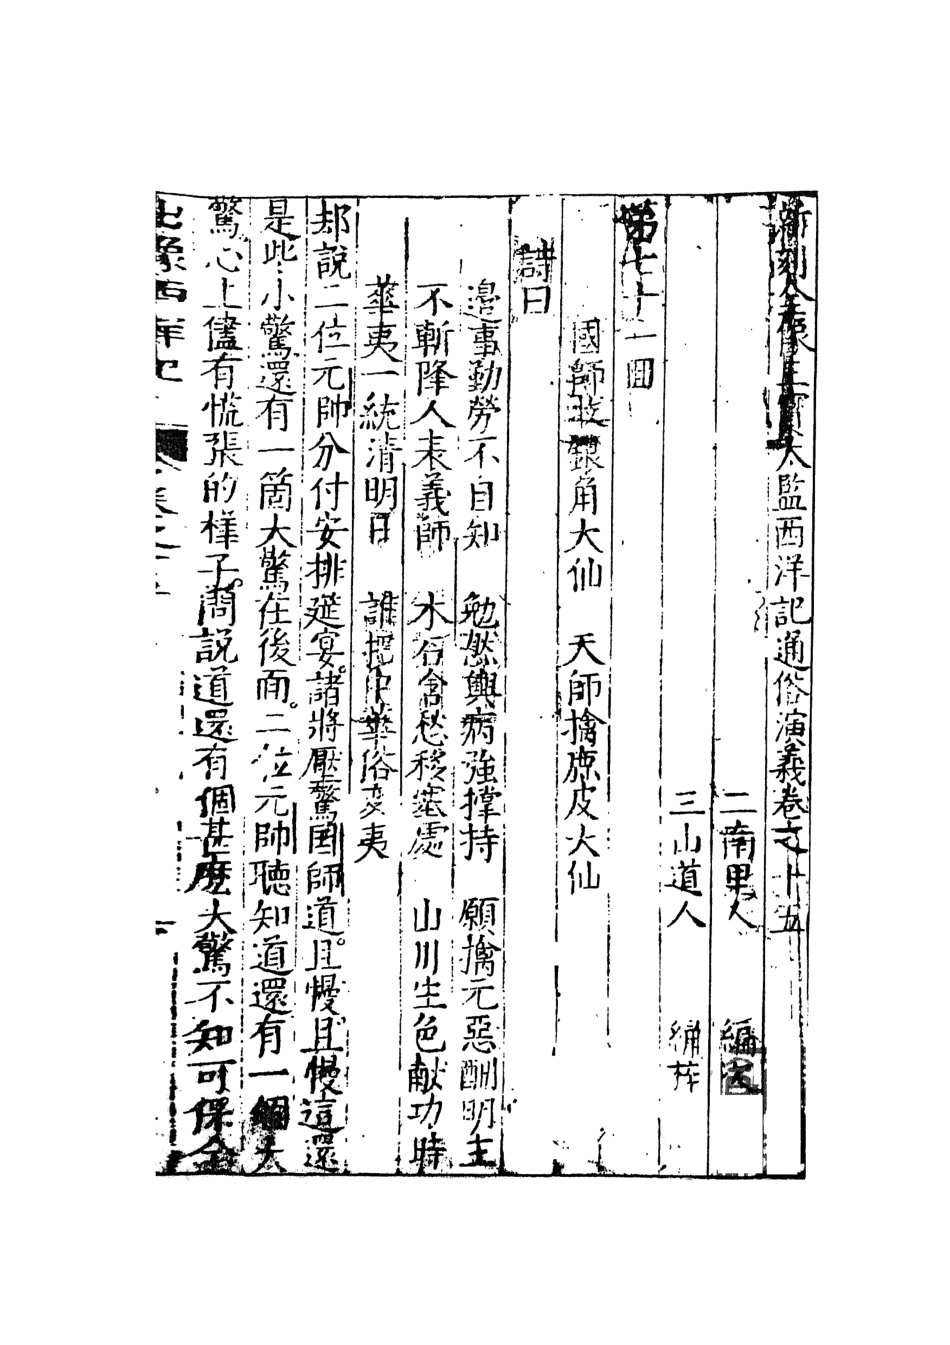 新刻全像三寶太監西洋記通俗演義卷之十五
二南里人 編次
三山道人 綉梓
第七十一回
國師收銀角大仙 天師擒鹿皮大仙
詩曰
邊事勤勞不自知 勉然輿病強撑持 願擒元惡酬明主
不斬降人表義師 木石含愁移塞處 山川生色献功時
華夷一統清明日 誰把中華俗变夷
却說二位元帥分付安排延宴。諸將壓驚國師道。且慢且慢這還
是些小驚還有一箇大驚在後面。二位元帥聽知道還有一個大
驚心上儘有慌張的樣子。問說道還有個甚麽大驚不知可保全
出像西洋記